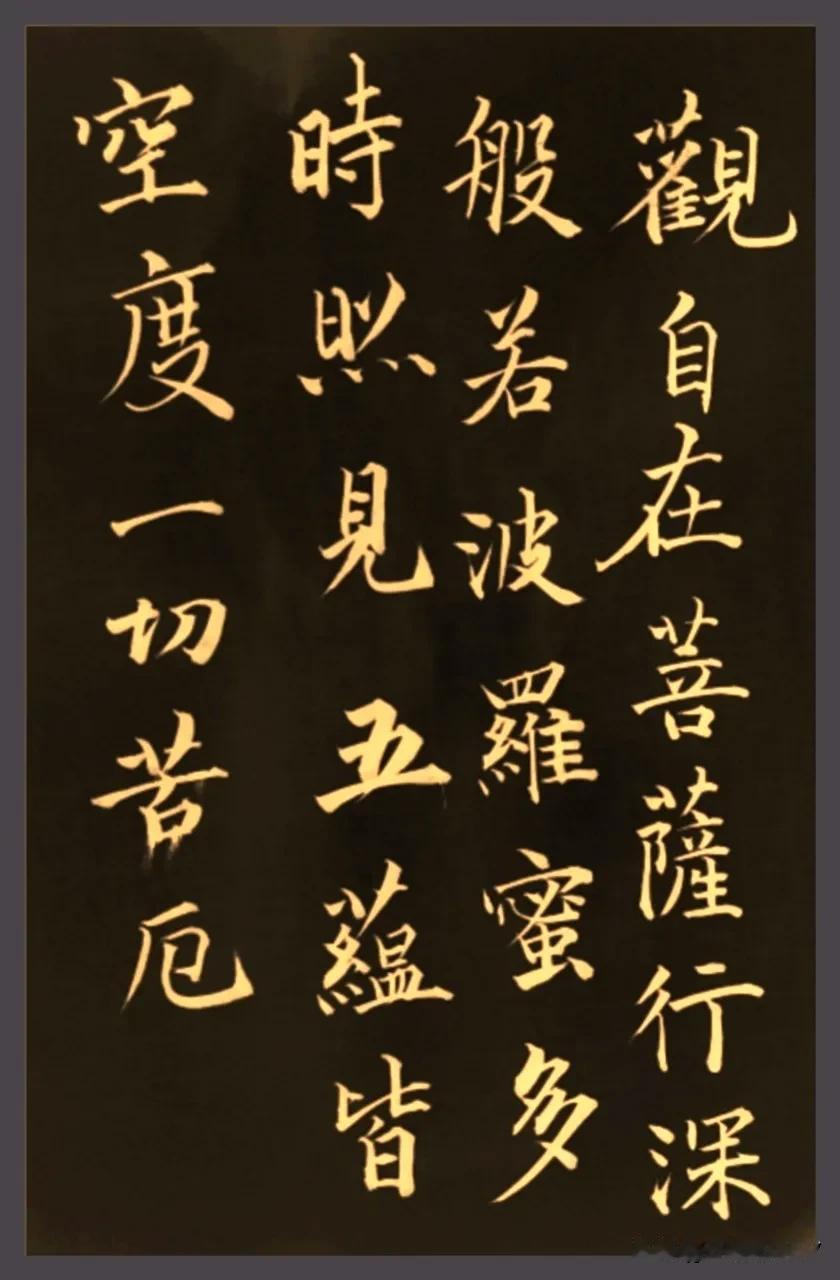 觀自在菩薩行深
般若波羅蜜多
時照見五蘊皆
空度一切苦厄